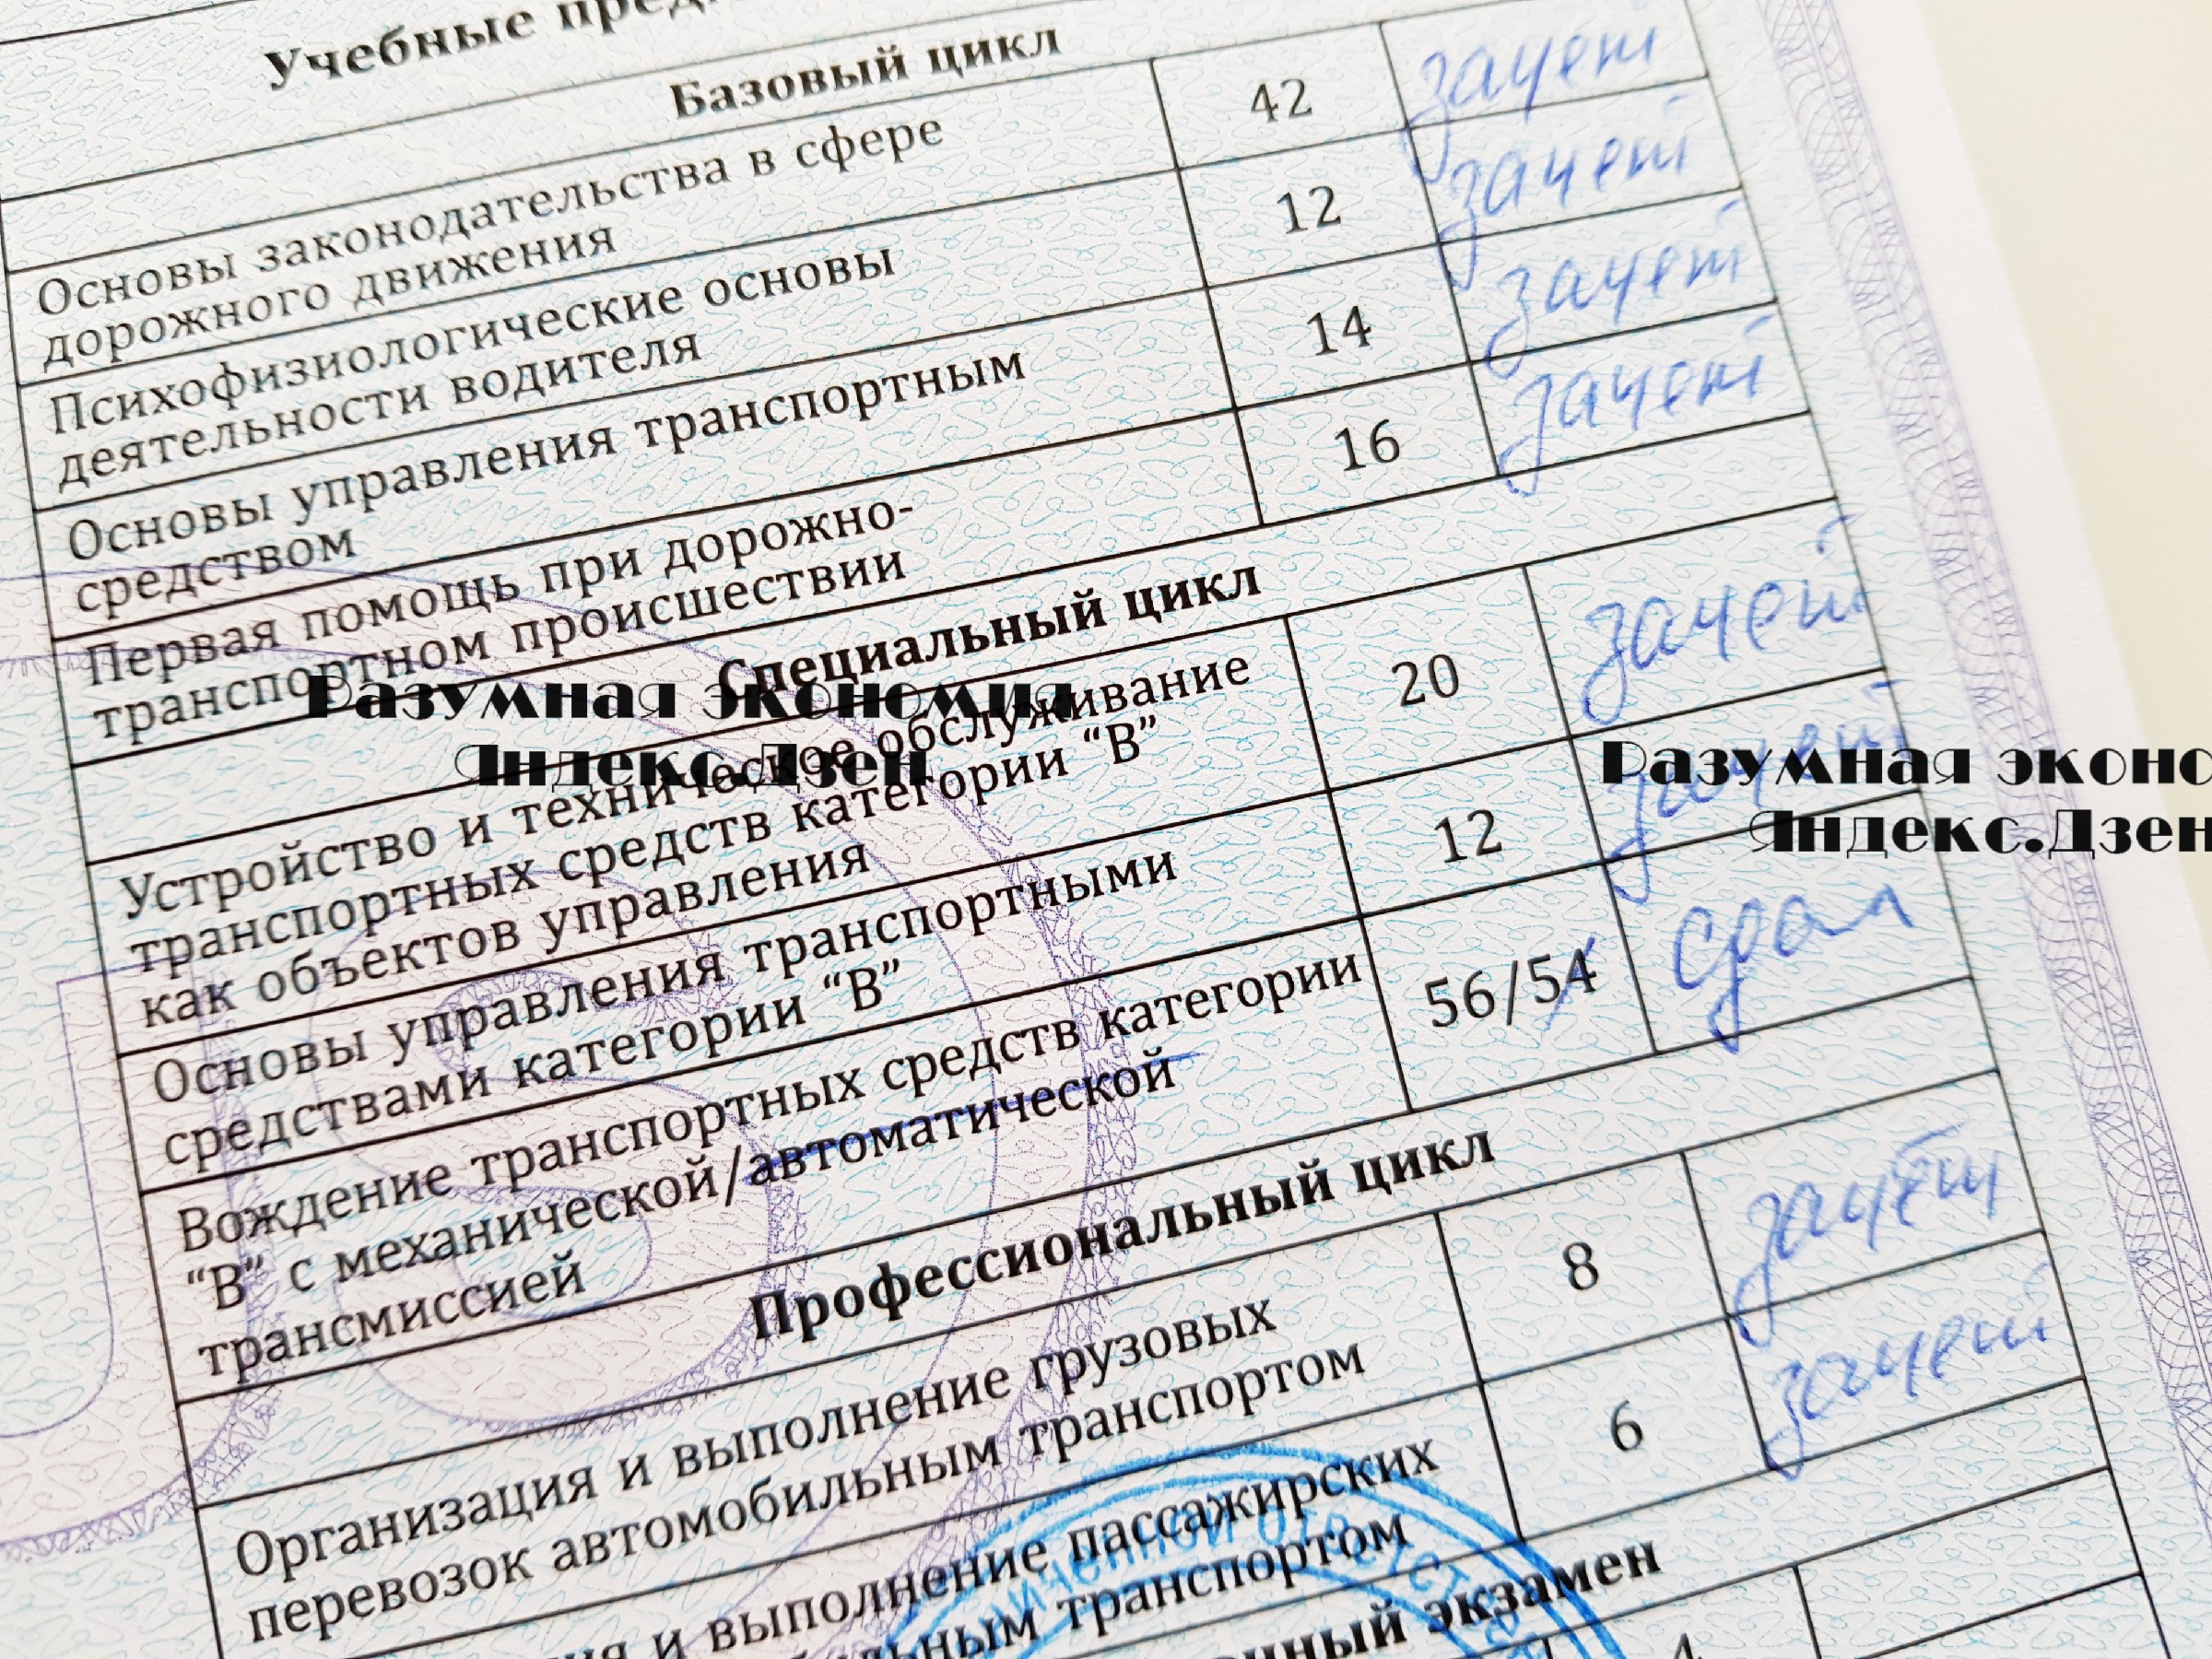 Учебные
Базовый цикл
Основы законодательства в сфере
дорожного движения
42
зачет
Психофизиологические основы
деятельности водителя
12
зачет
Основы управления транспортным
средством
14
зачет
Первая помощь при дорожно-
транспортном происшествии
16
зачет
Специальный цикл
Устройство и техническое обслуживание
транспортных средств категории “B”
как объектов управления
20
зачет
Основы управления транспортными
средствами категории “B”
12
зачет
Вождение транспортных средств категории
“B” с механической/автоматической
трансмиссией
56/54
сдал
Профессиональный цикл
Организация и выполнение грузовых
перевозок автомобильным транспортом
8
зачет
и выполнение пассажирских
транспортом
6
зачет
экзамен
4
Разумная экономия
Яндекс.Дзен
Разумная эконо
Яндекс.Дзен